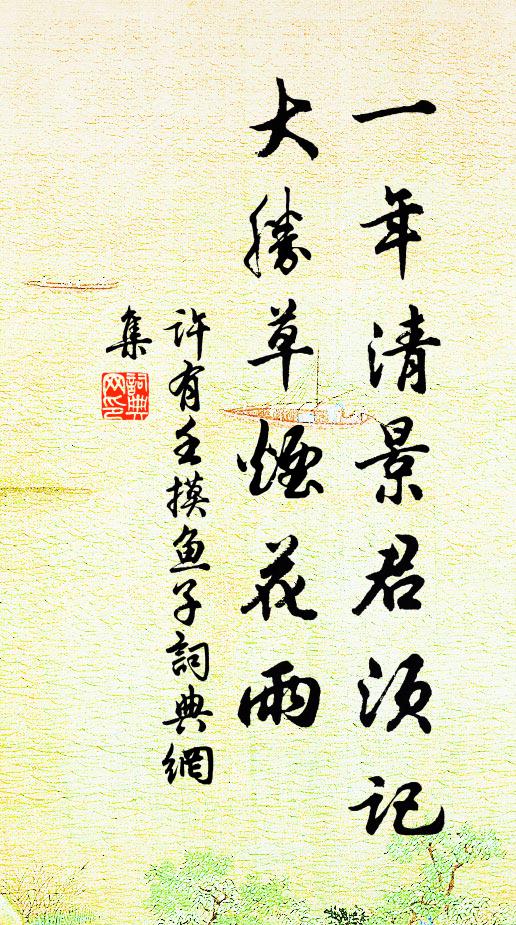 一年清景君须记
大勝草煙花雨
许有壬摸鱼子詞典網
集
詞典
网印